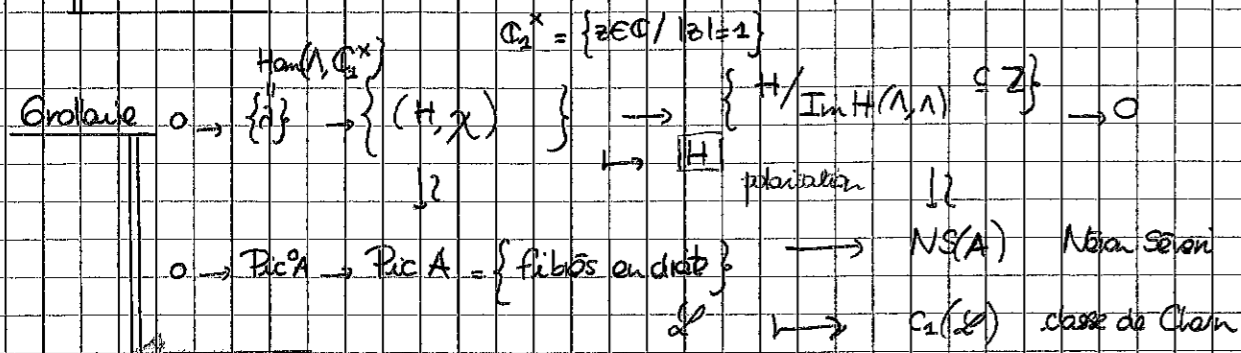 ℂ₁ˣ = {z∈ℂ / |z|=1}
Hom(Λ, ℂ₁ˣ)
Corollaire 0 → {χ} → {(H, χ)} → {H / Im H(Λ,Λ) ⊆ ℤ} → 0
↦ H
polarisation
0 → Pic°A → Pic A = {fibrés en droite} → NS(A) Néron Séveri
ℒ ↦ c₁(ℒ) classe de Chern